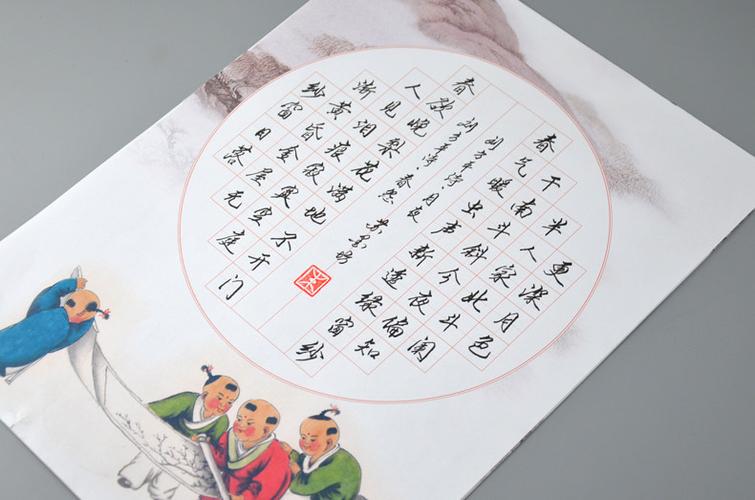 更深月色
半人家北斗阑
干南斗斜今夜偏知
春气暖虫声新透绿窗纱
刘方平诗·月夜
纱窗日落
渐黄昏金屋无
人见泪痕寂寞空庭
春欲晚梨花满地不开门
刘方平诗·春怨 苏